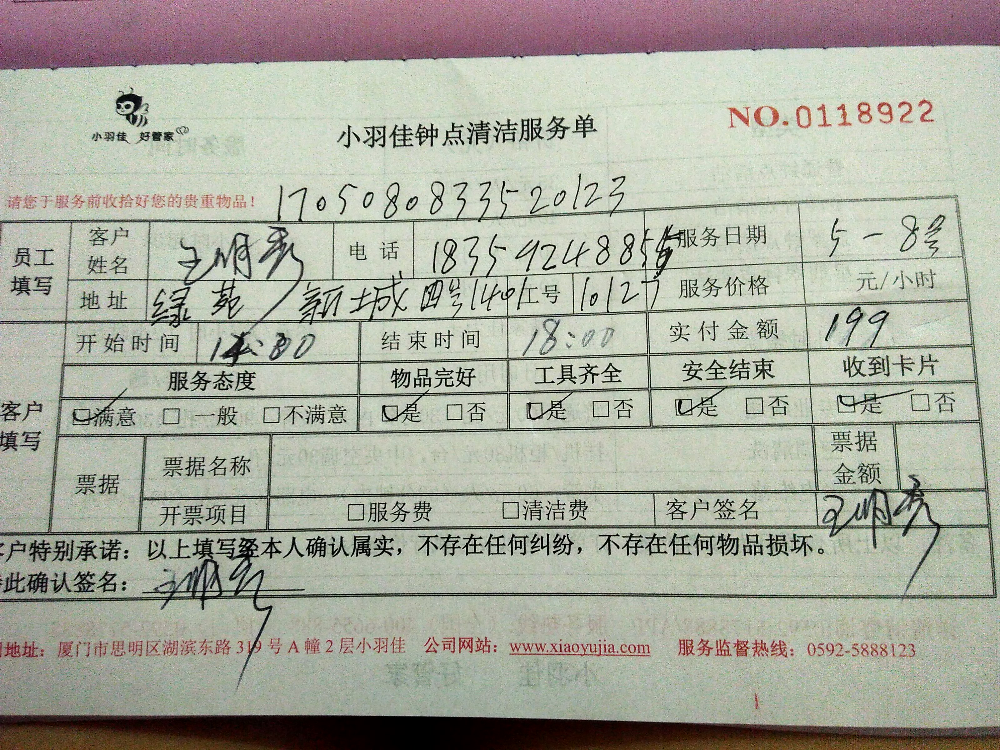 小羽佳 好管家
小羽佳钟点清洁服务单
NO.0118922
请您于服务前收拾好您的贵重物品!
1705080833520123
员工填写 客户姓名 王明秀 电话 服务日期 5-8号
地址 绿苑新城四号1401 工号 10127 服务价格 元/小时
开始时间 结束时间 18:00 实付金额 199
服务态度 物品完好 工具齐全 安全结束 收到卡片
客户填写 满意 一般 不满意 是 否 是 否 是 否 是 否
票据 票据名称 票据金额
开票项目 服务费 清洁费 客户签名 王明秀
客户特别承诺:以上填写经本人确认属实,不存在任何纠纷,不存在任何物品损坏。
此确认签名: 王明秀
地址:厦门市思明区湖滨东路319号A幢2层小羽佳 公司网站:www.xiaoyujia.com 服务监督热线:0592-5888123